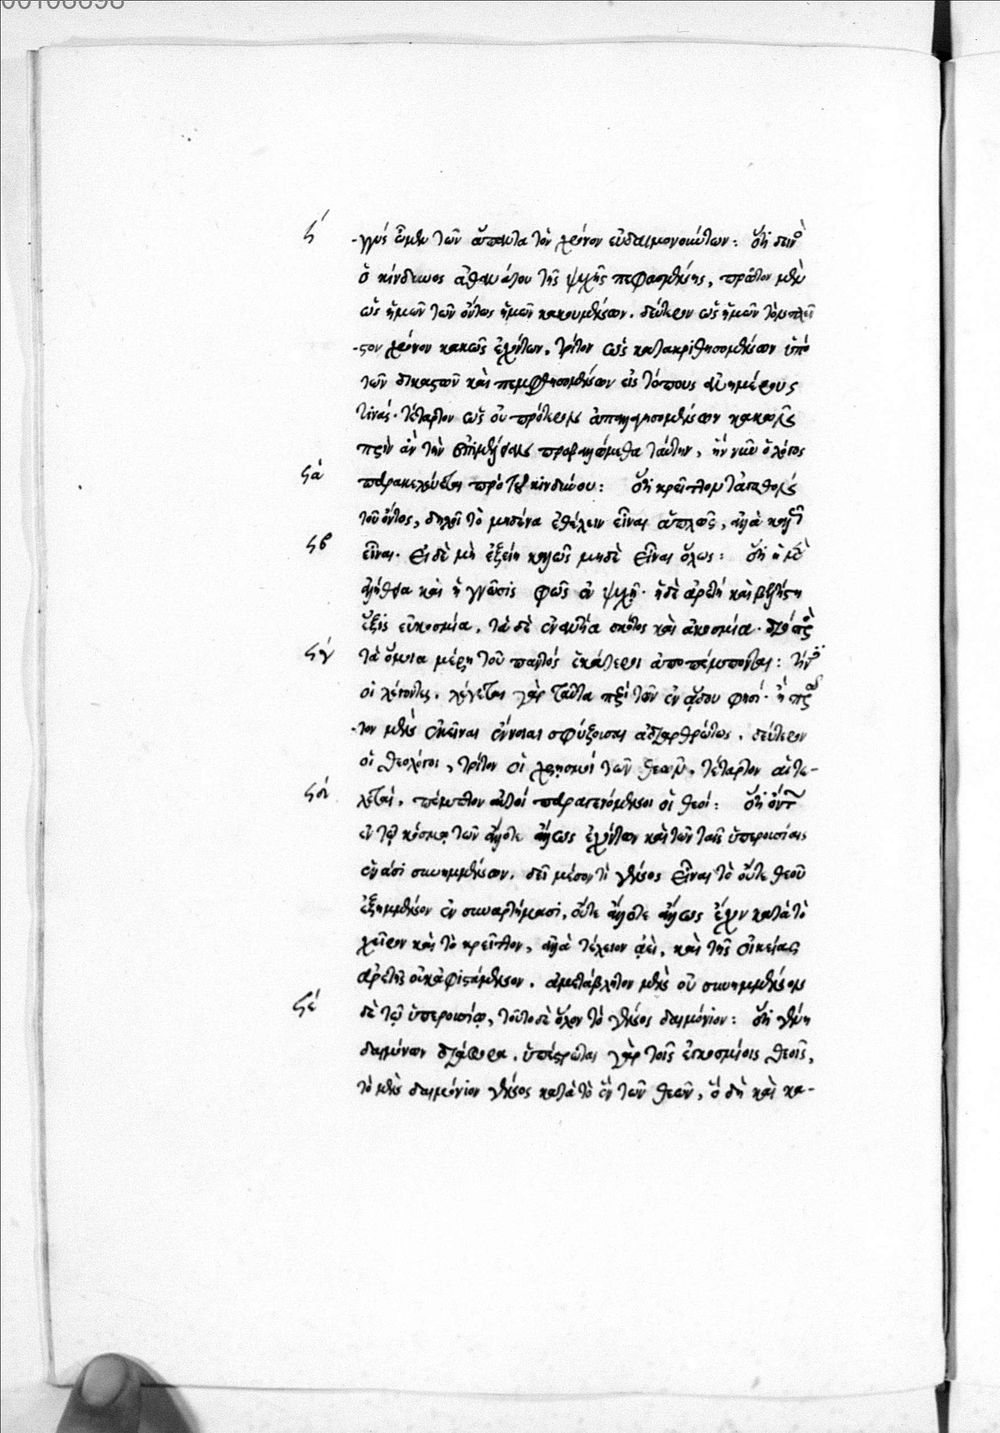 ϟ
-γγὺς ὦμεν τῶν ἅπαντα τὸν χρόνον εὐδαιμονούντων: ὅτι δεινὸ
ὁ κίνδυνος ἀθανάτου τῆς ψυχῆς πεφασμένης, πρῶτον μὲν
ὡς ἡμῶν τῶν ὄντως ἡμῶν κακουμένων. δεύτερον ὡς ἡμῶν τὸν πλεῖ
-στον χρόνον κακῶς ἐχόντων, τρίτον ὡς κατακριθησομένων ὑπὸ
τῶν δικαστῶν καὶ πεμφθησομένων εἰς τόπους ἀνημέρους
τινάς. τέταρτον ὡς οὐ πρότερον ἀπαλλαγησομένων κακῶν
πρὶν ἂν τὴν ἐπιμέλειαν προβαλλώμεθα ταύτην, ἣν νῦν ὁ λόγος
ϟα
παρακελεύεται πρὸ τοῦ κινδύνου: ὅτι κρεῖττον τἀγαθὸν
τοῦ ὄντος, δηλοῖ τὸ μηδένα ἐθέλειν εἶναι ἁπλῶς, ἀλλὰ καλῶ
ϟβ
εἶναι. εἰ δὲ μὴ ἐξείη καλῶς μηδὲ εἶναι ὅλως: ὅτι ἡ μὲ
ἀλήθεια καὶ ἡ γνῶσις φῶς ἐν ψυχῇ. ἡ δὲ ἀρετὴ καὶ βελτίστη
ἕξις εὐκοσμία, τὰ δὲ ἐναντία σκότος καὶ ἀκοσμία. διὸ πρὸς
ϟγ
τὰ ὅμοια μέρη τοῦ παντὸς ἑκάτεραι ἀποπέμπονται: τίνες
οἱ λέγοντες, λέγεται γὰρ ταῦτα περὶ τῶν ἐν ᾅδου φησί. ἢ πρῶ
-τον μὲν ἐκεῖναι ἔννοιαι σφύζουσαι ἀδιαρθρώτως, δεύτερον
οἱ θεολόγοι, τρίτον οἱ χρησμοὶ τῶν θεῶν, τέταρτον αἱ τε-
ϟδ
λεταί, πέμπτον αὐτοὶ παραγενόμενοι οἱ θεοί: ὅτι ὄντων
ἐν τῷ κόσμῳ τῶν ἄλλοτε ἄλλως ἐχόντων καὶ τῶν ταῖς ὑπερουσίοις
ἑνάσι συνημμένων, δεῖ μέσον τι γένος εἶναι τὸ οὔτε θεοῦ
ἐξημμένον ἐν συναρτήμασι, οὔτε ἄλλοτε ἄλλως ἔχον κατὰ τὸ
χεῖρον καὶ τὸ κρεῖττον, ἀλλὰ τέλειον ἀεὶ, καὶ τῆς οἰκείας
ἀρετῆς οὐκ ἀφιστάμενον, ἀμετάβλητον μὲν οὐ συνημμένον
ϟε
δὲ τῷ ὑπερουσίῳ, τοῦτο δὲ ὅλον τὸ γένος δαιμόνιον: ὅτι γένη
δαιμόνων διάφορα, ὑπέστρωται γὰρ τοῖς ἐγκοσμίοις θεοῖς,
τὸ μὲν δαιμόνιον γένος κατὰ τὸ ἓν τῶν θεῶν, ὃ δὴ καὶ κα-